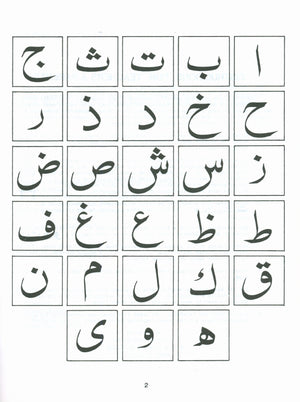 ا ب ت ث ج
ح خ د ذ ر
ز س ش ص ض
ط ظ ع غ ف
ق ك ل م ن
ه و ى
2